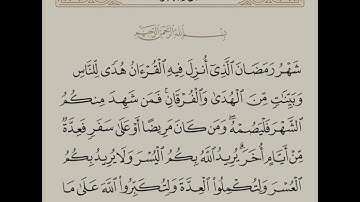 بِسْمِ اللَّهِ الرَّحْمَٰنِ الرَّحِيمِ
شَهْرُ رَمَضَانَ ٱلَّذِىٓ أُنزِلَ فِيهِ ٱلْقُرْءَانُ هُدًى لِّلنَّاسِ
وَبَيِّنَٰتٍ مِّنَ ٱلْهُدَىٰ وَٱلْفُرْقَانِ ۚ فَمَن شَهِدَ مِنكُمُ
ٱلشَّهْرَ فَلْيَصُمْهُ ۖ وَمَن كَانَ مَرِيضًا أَوْ عَلَىٰ سَفَرٍ فَعِدَّةٌ
مِّنْ أَيَّامٍ أُخَرَ ۗ يُرِيدُ ٱللَّهُ بِكُمُ ٱلْيُسْرَ وَلَا يُرِيدُ بِكُمُ
ٱلْعُسْرَ وَلِتُكْمِلُوا۟ ٱلْعِدَّةَ وَلِتُكَبِّرُوا۟ ٱللَّهَ عَلَىٰ مَا